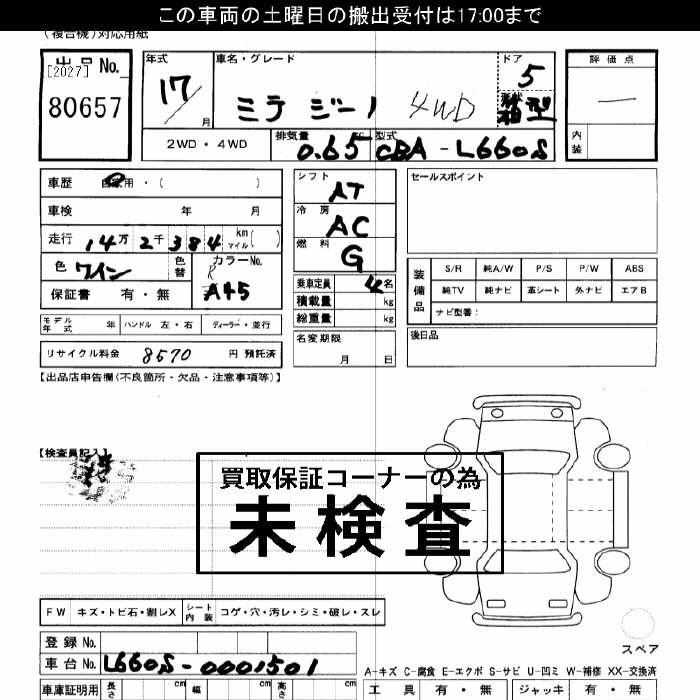 この車両の土曜日の搬出受付は17:00まで
(複合機)対応用紙
出品 No.
[2027]
80657
年式
17
月
車名・グレード
ミラ ジーノ 4WD
ドア
5
形状
箱型
評価点
—
内装
2WD・4WD
排気量
0.65
cc
型式
CBA-L660S
車歴
自家用・( )
車検 年 月
走行 14万 2千 384 km マイル( )
色 ワイン
色替
カラーNo.
R
A45
保証書 有・無
シフト
AT
冷房
AC
燃料
G
乗車定員 4名
積載量 kg
総重量 kg
名変期限
月 日
セールスポイント
装備品
S/R 純A/W P/S P/W ABS
純TV 純ナビ 革シート 外ナビ エアB
ナビ型番:
後日品
モデル年式 年 ハンドル 左・右 ディーラー・並行
リサイクル料金 8570 円 預託済
【出品店申告欄(不良箇所・欠品・注意事項等)】
【検査員記入】
買取保証コーナーの為
未検査
FW キズ・トビ石・割レX シート内装 コゲ・穴・汚レ・シミ・破レ・スレ
登録 No.
車台 No. L660S-0001501
スペア
A-キズ C-腐食 E-エクボ S-サビ U-凹ミ W-補修 XX-交換済
車庫証明用 長さ cm 幅 cm 高さ cm
工具 有・無 ジャッキ 有・無